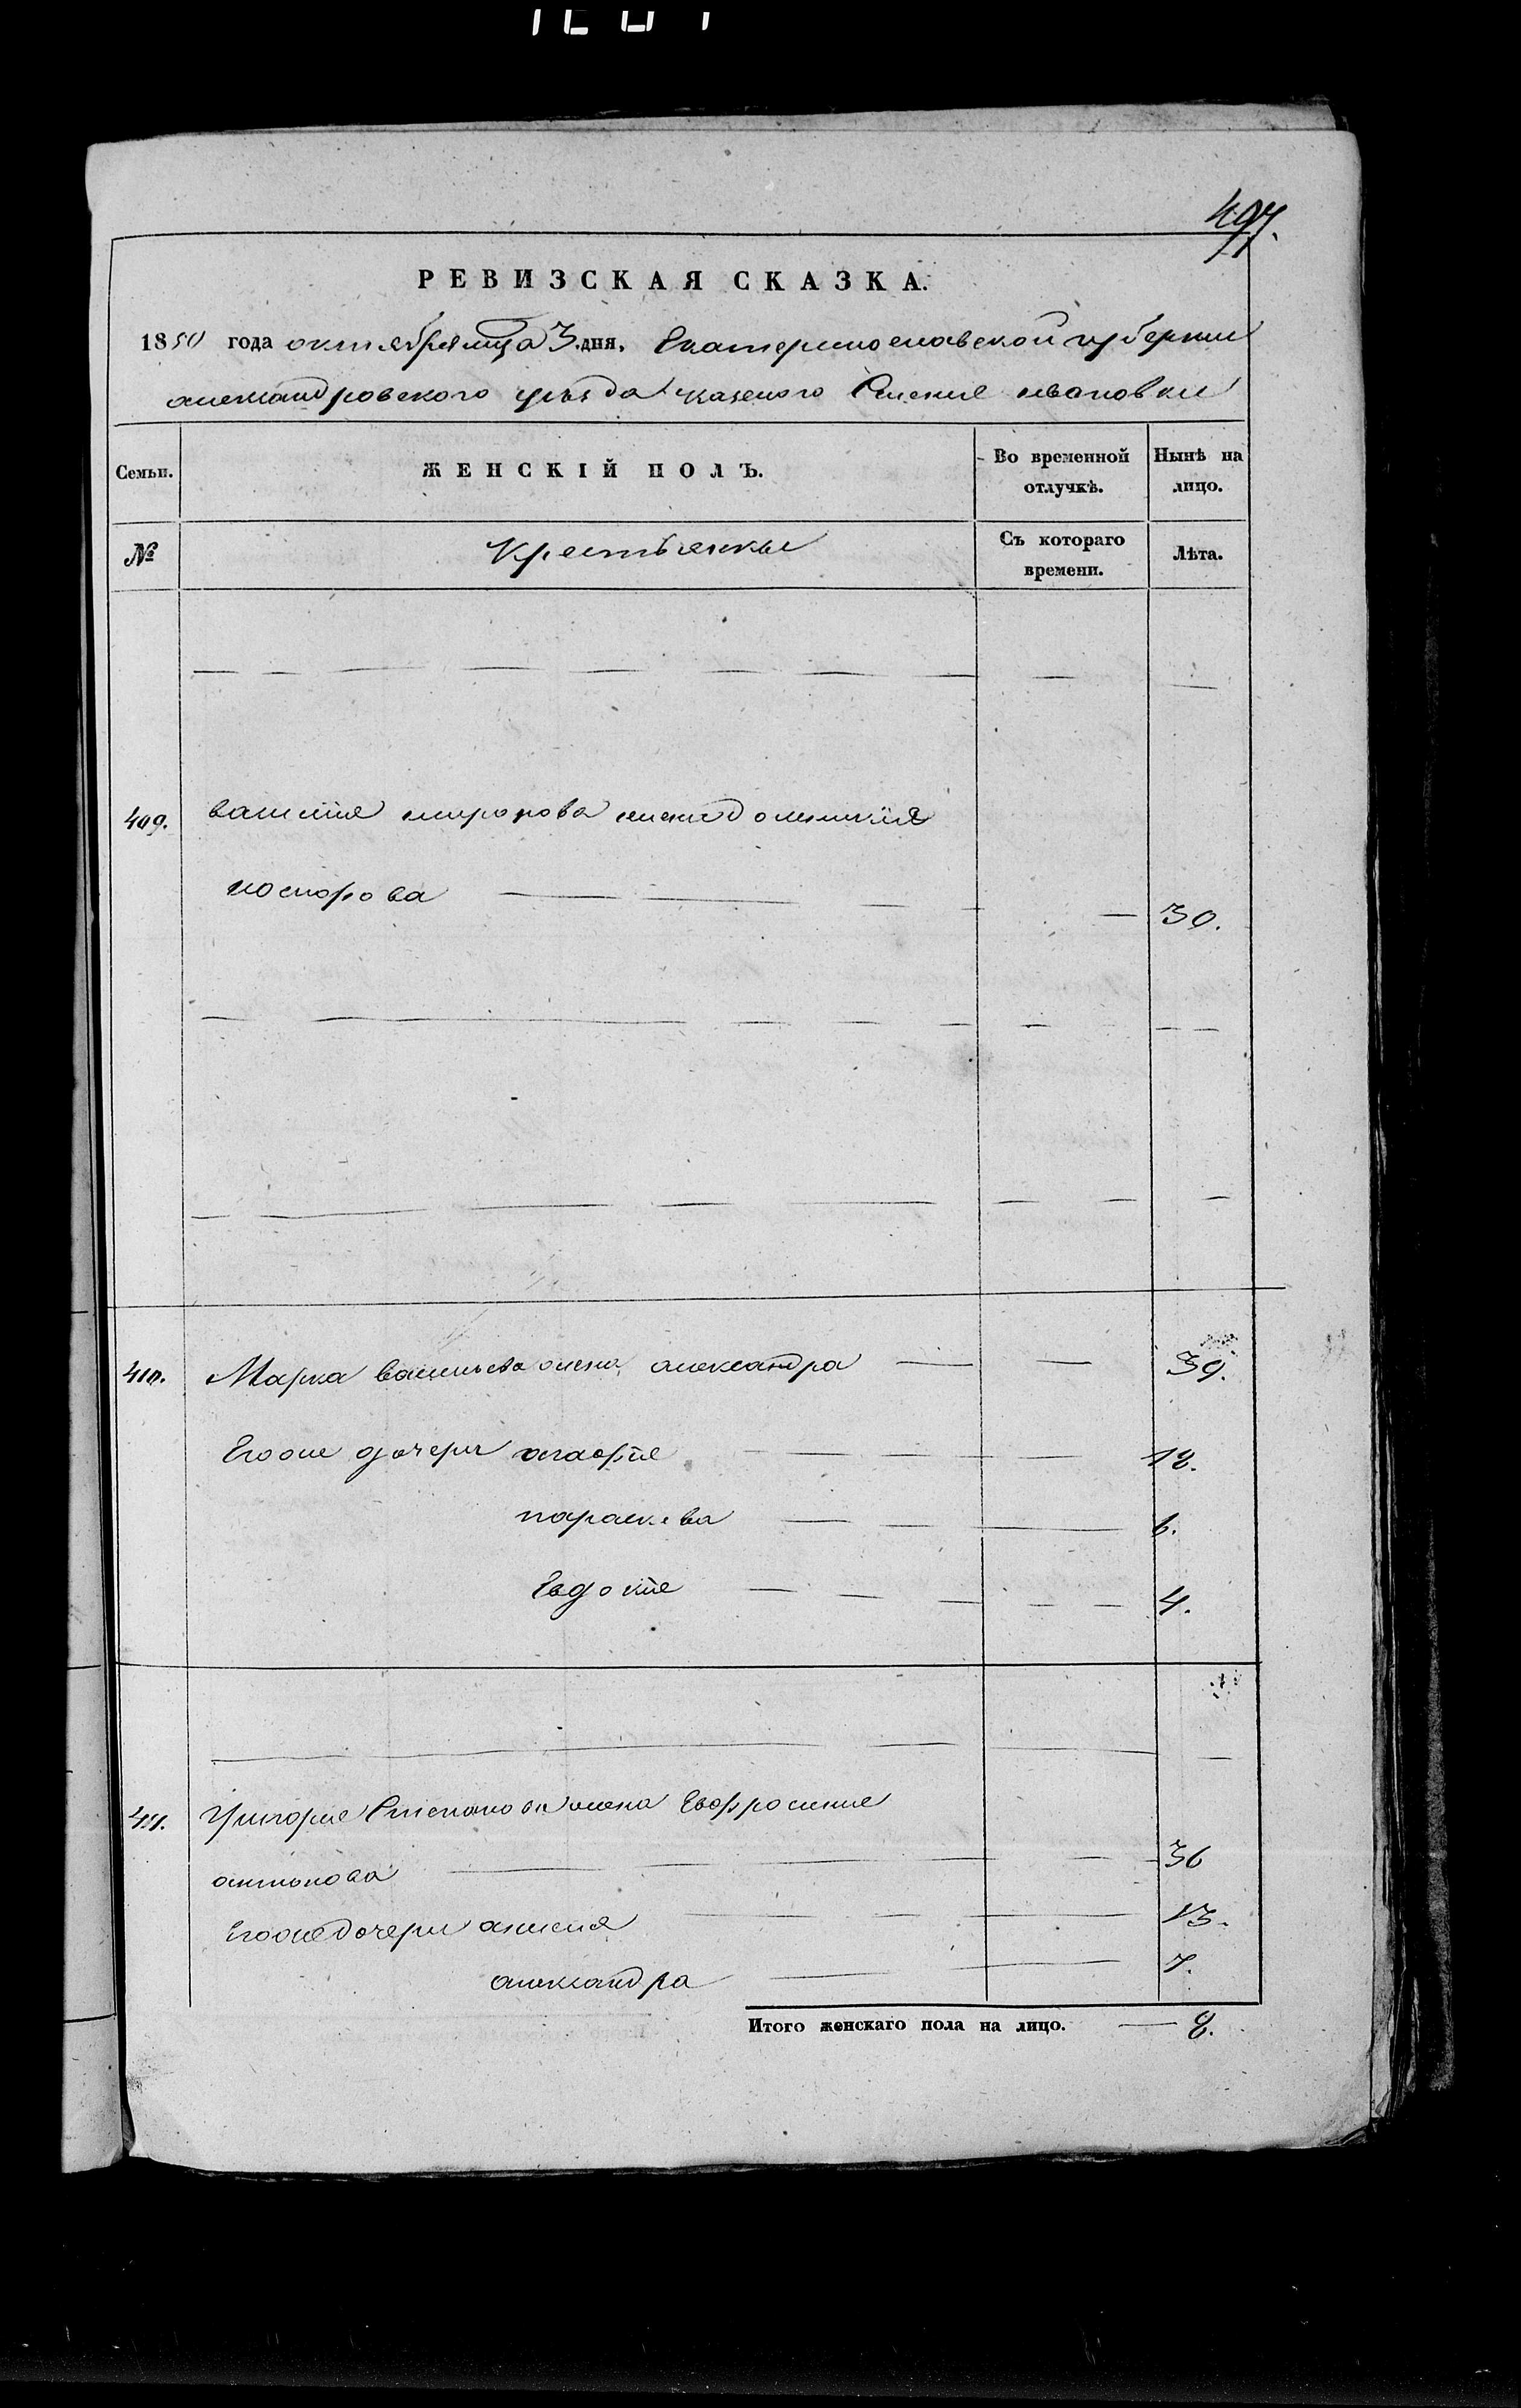 497.
РЕВИЗСКАЯ СКАЗКА.
1850 года октября мца 3 дня. Екатеринославской губернии
александровского уезда казеного Селение ивановки
Семьи. ЖЕНСКІЙ ПОЛЪ. Во временной отлучкѣ. Нынѣ на лицо.
№ Крестьянки Съ котораго времени. Лѣта.
409. василия миронова жена домникия
носирова 30.
410. Марка васильева жена александра 39.
Егоже дочери агафiя 12.
параскева 6.
Евдокiя 4.
411. Григория Степанова жена Евфросиния
антонова 36
Егоже дочери анисия 13.
александра 7.
Итого женскаго пола на лицо. 8.